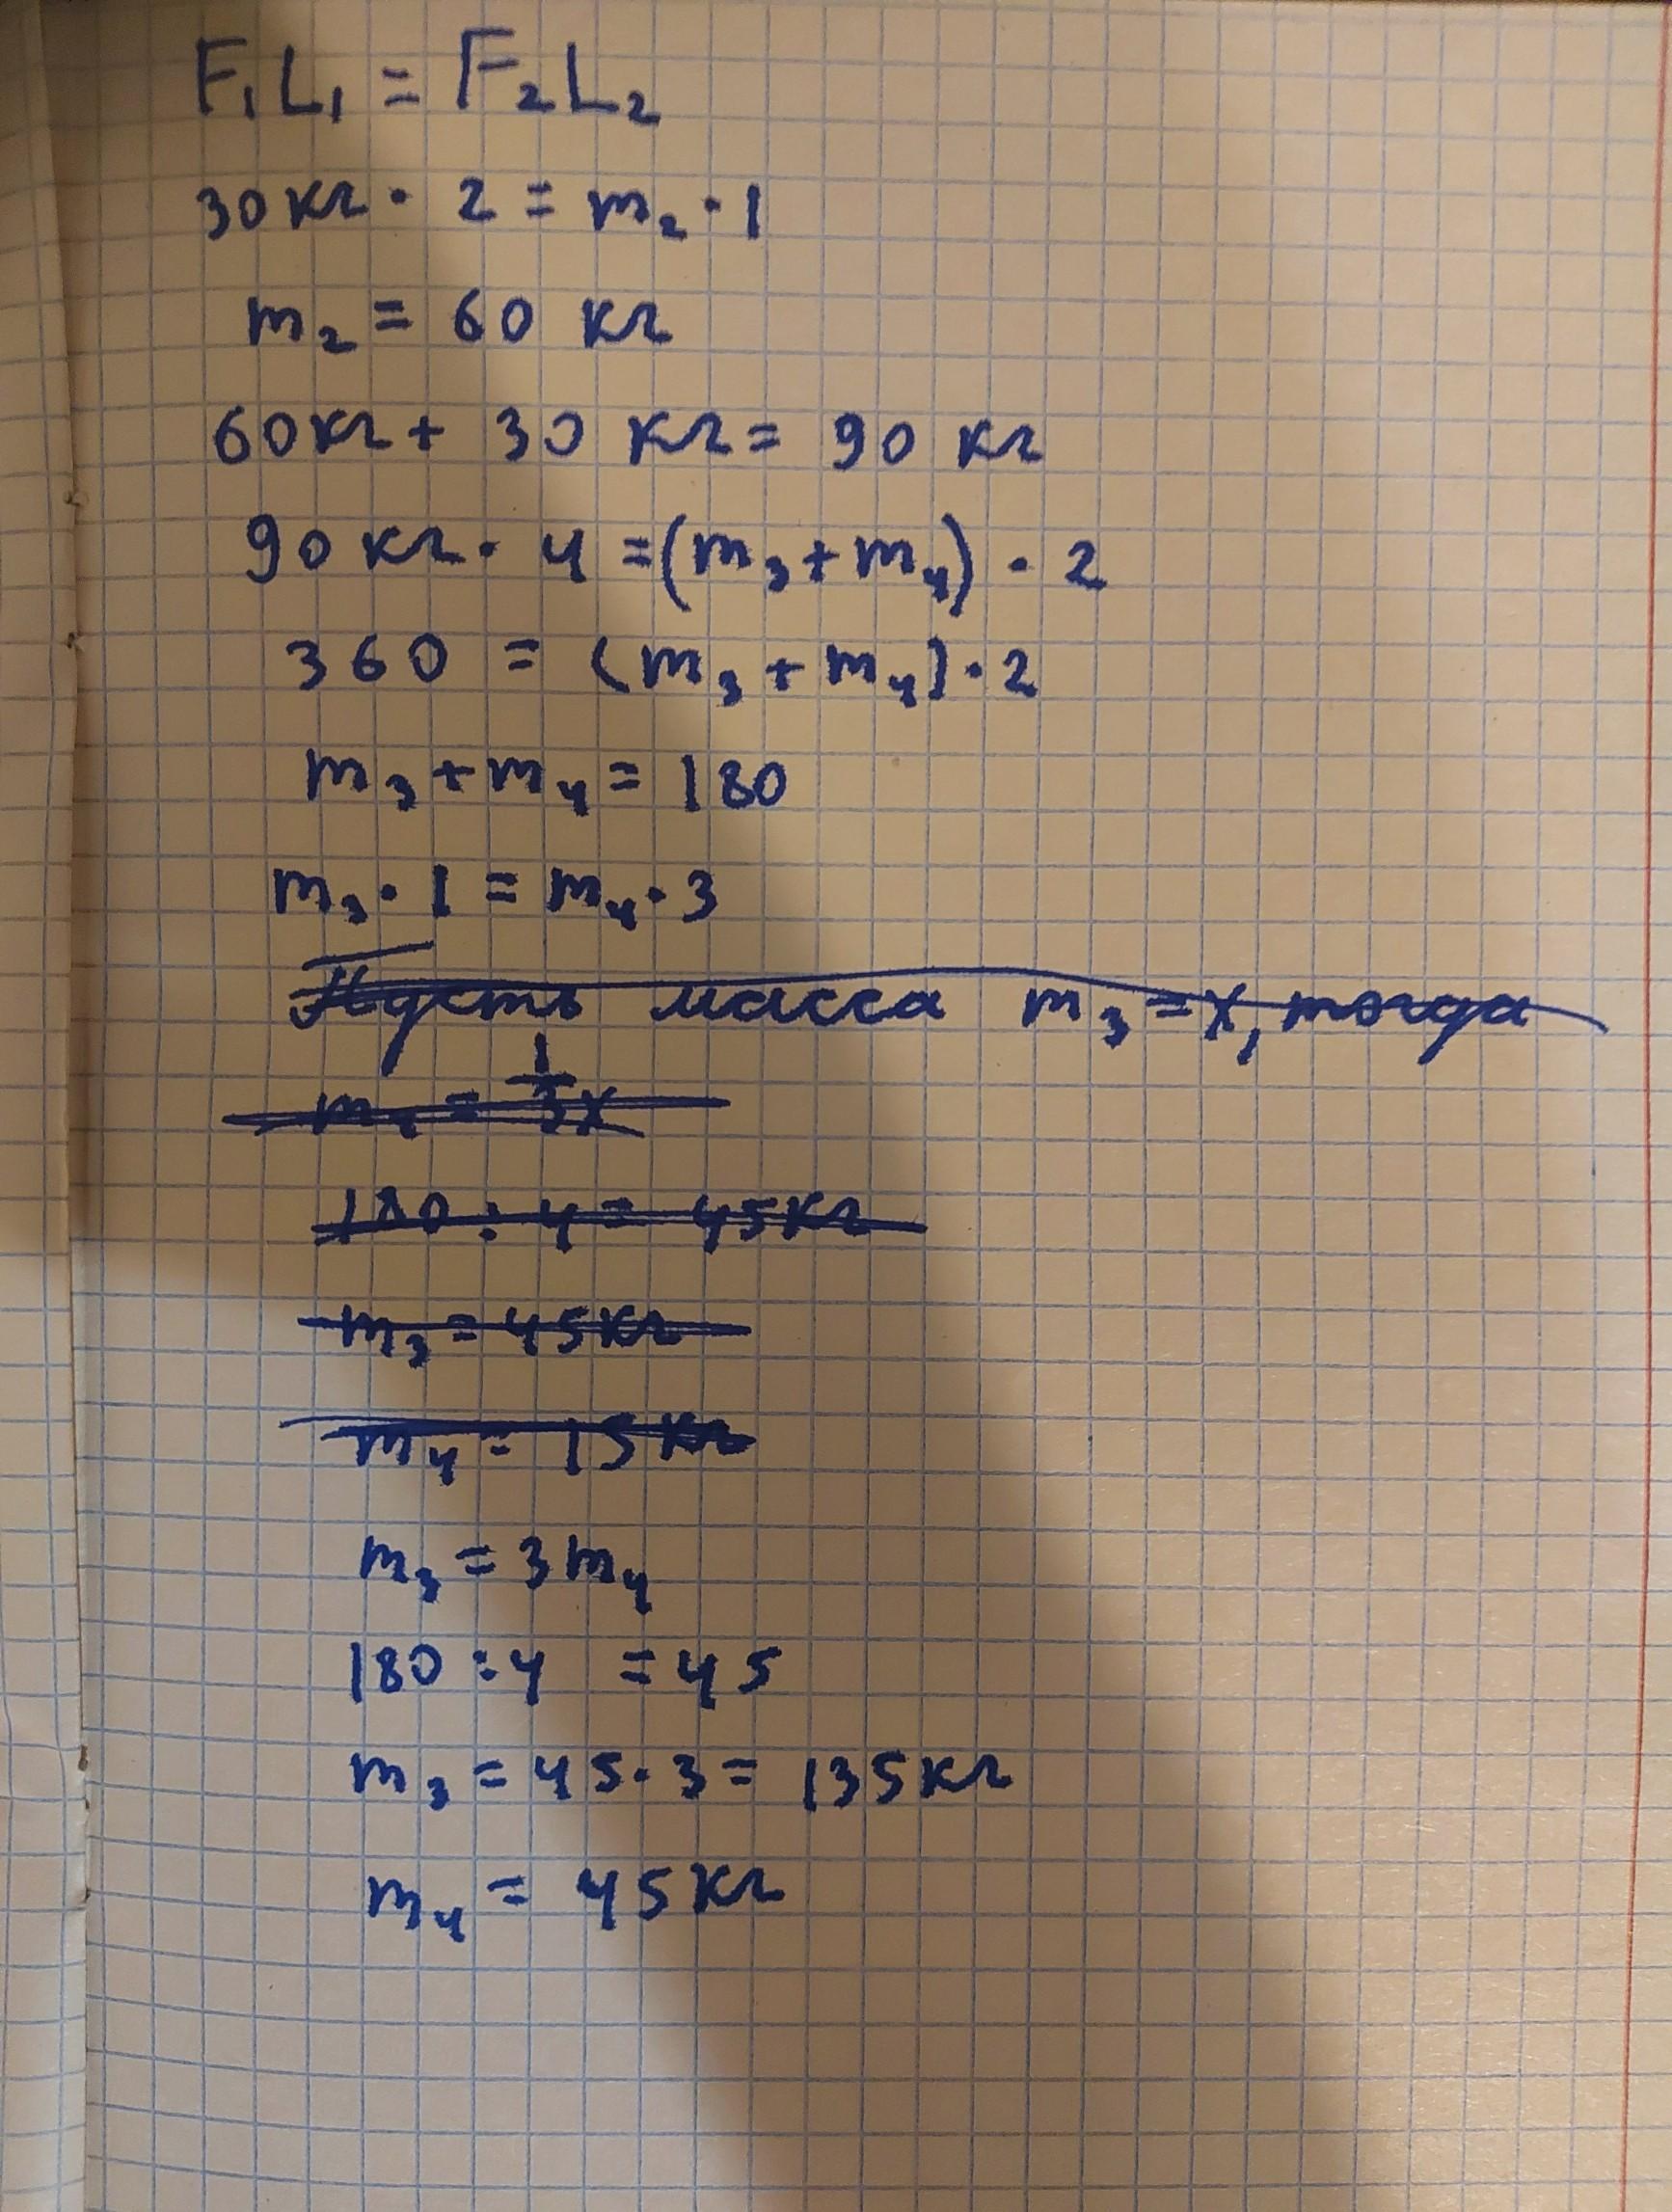 F₁L₁ = F₂L₂
30кг · 2 = m₂ · 1
m₂ = 60 кг
60кг + 30 кг = 90 кг
90 кг · 4 = (m₃ + m₄) · 2
360 = (m₃ + m₄) · 2
m₃ + m₄ = 180
m₃ · 1 = m₄ · 3
Пусть масса m₃ = x, тогда
m₄ = 1/3x
180 : 4 = 45кг
m₃ = 45кг
m₄ = 15кг
m₃ = 3m₄
180 : 4 = 45
m₃ = 45 · 3 = 135кг
m₄ = 45кг